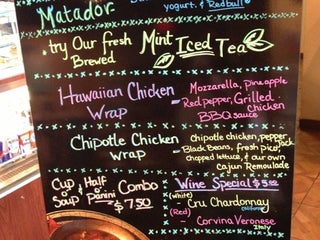 Matador
yogurt, & Redbull
try Our fresh
Brewed
Mint Iced Tea
Hawaiian Chicken
Wrap
- Mozzarella, Pineapple
Red pepper, Grilled
Chicken
BBQ sauce
Chipotle Chicken
wrap
- Chipotle chicken, pepper jack
Black beans, fresh pico,
chopped lettuce, & our own
Cajun Remoulade
Cup o' Soup & Half Panini Combo
$7.50
Wine Special $5.00
(white) Cru Chardonnay
(Red) Corvina Veronese
Italy